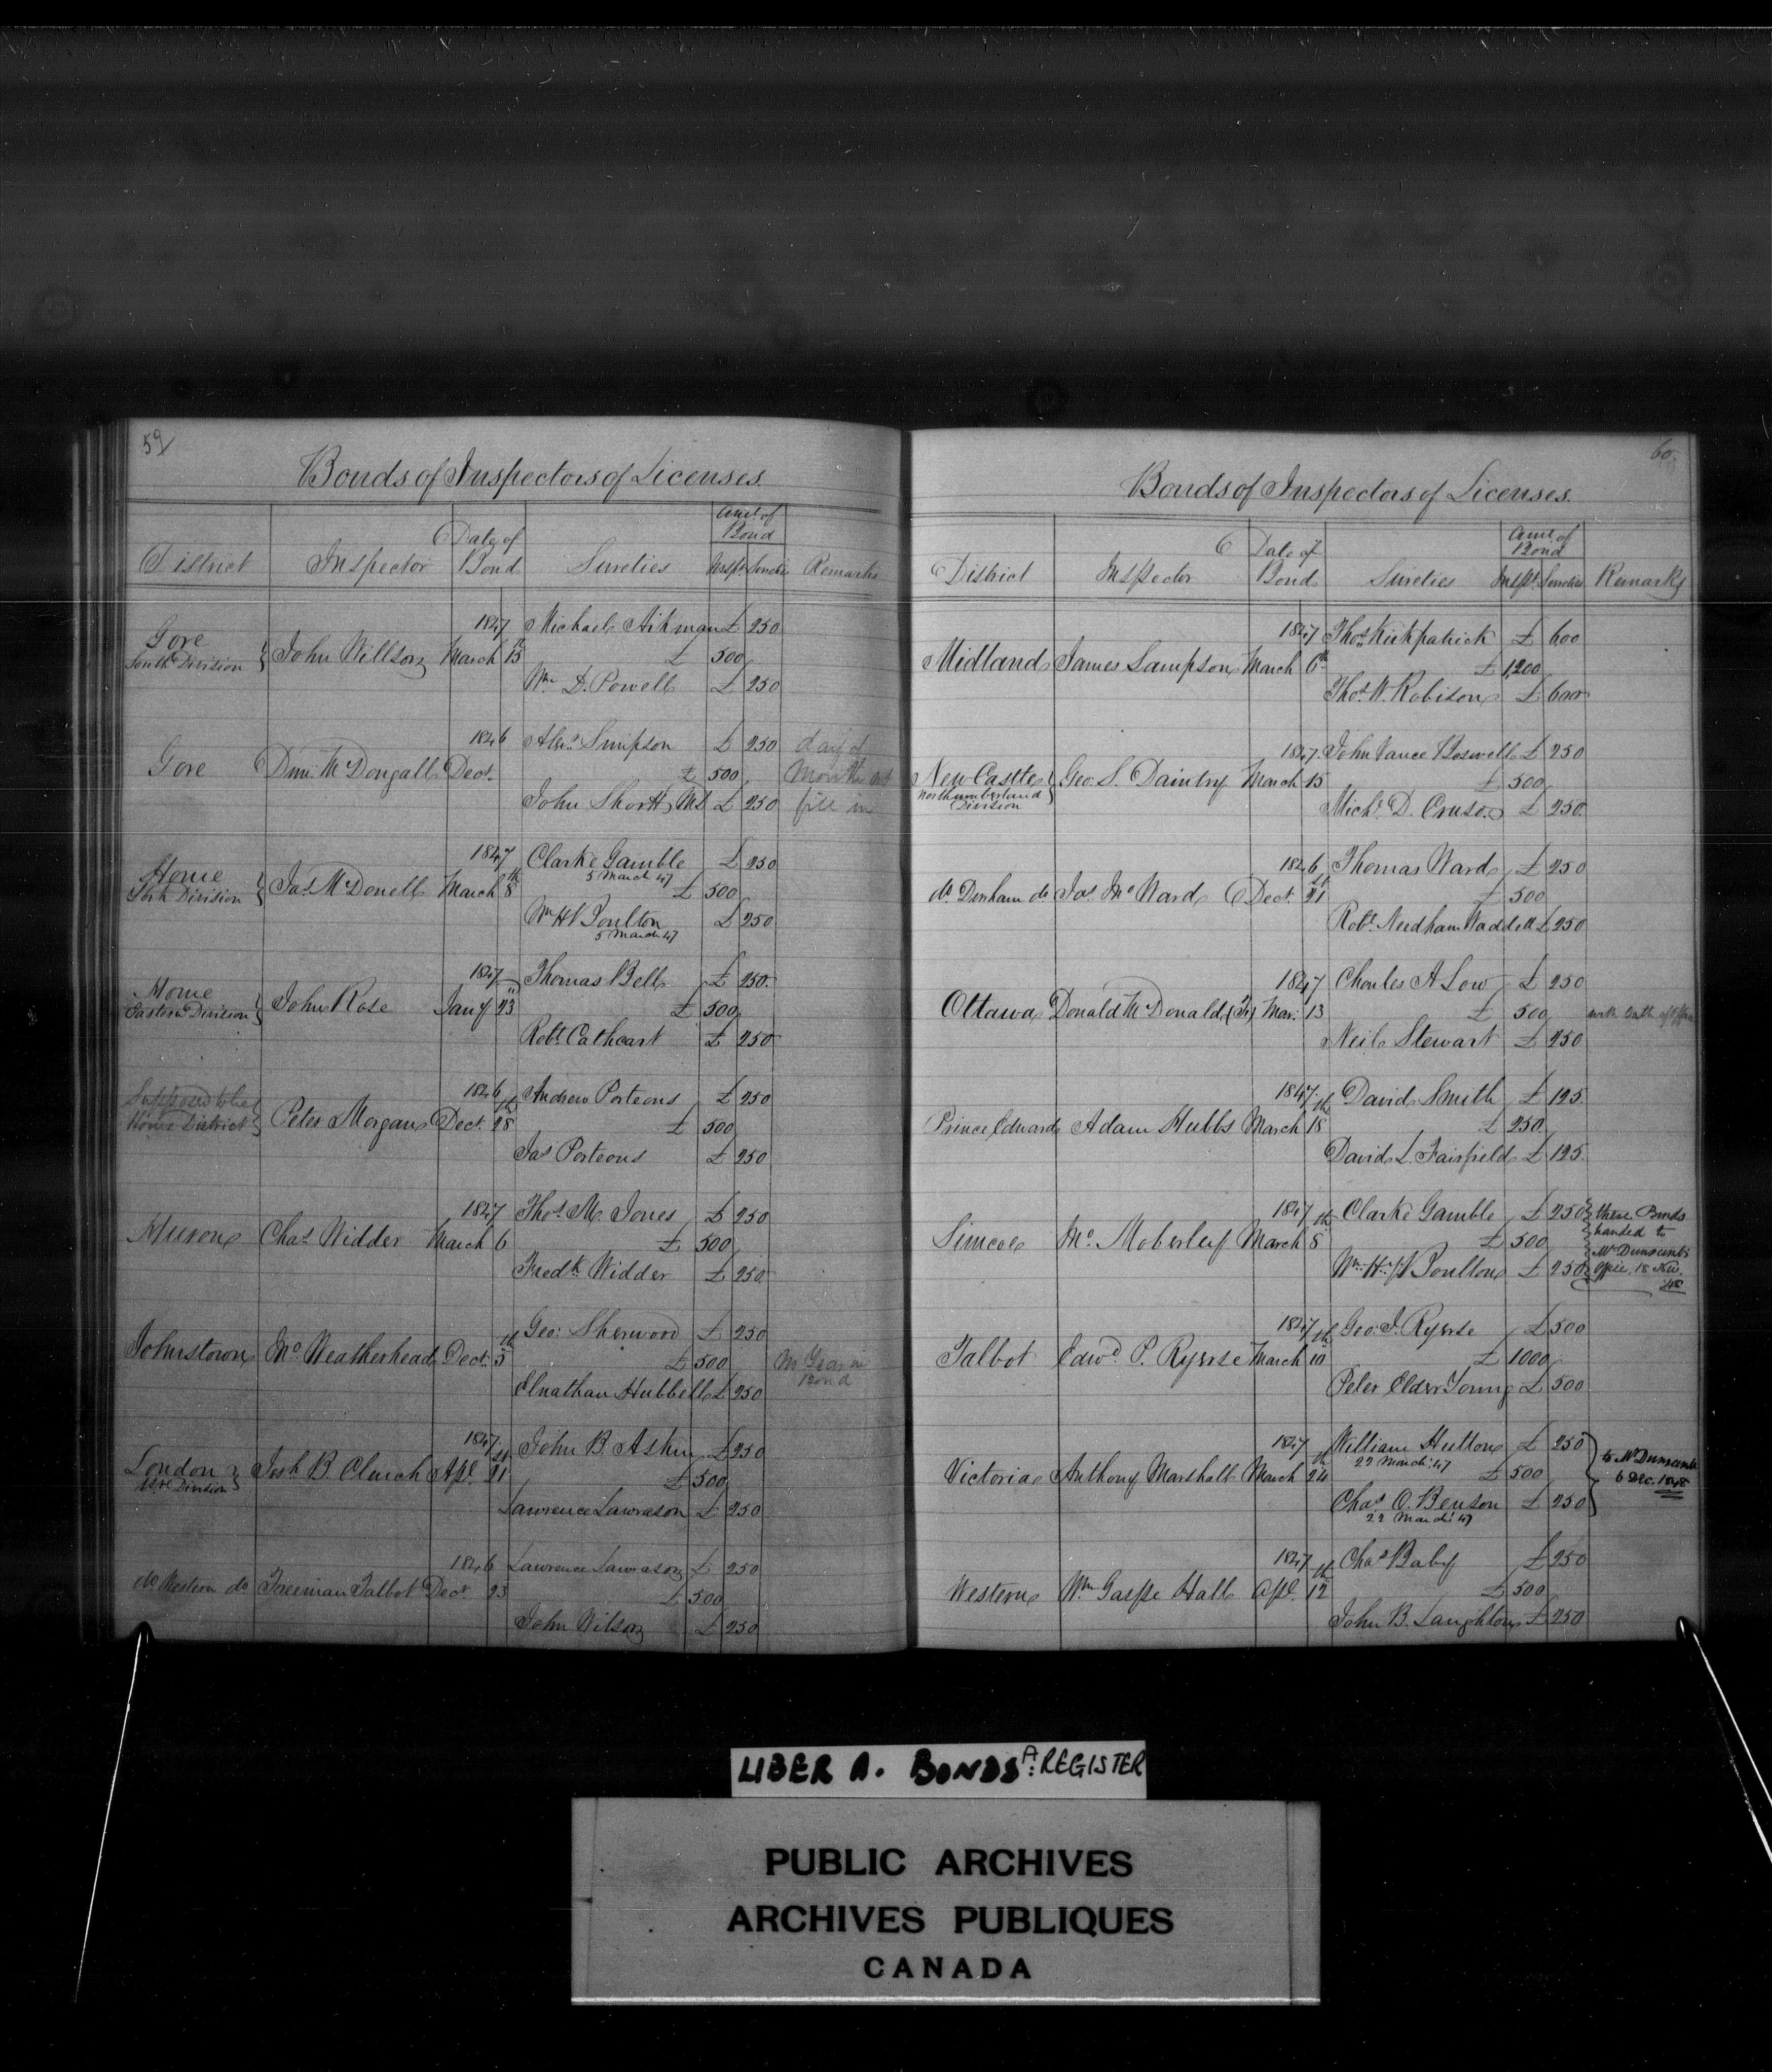 59
Bonds of Inspectors of Licenses.
District Inspector Date of Bond Sureties Amt. of Bond Inspr. Sureties Remarks
1847 Michael Aikman £ 250
Gore South Division } John Willson March 15 £ 500
Wm D. Powell £ 250
1846 Alexr Simpson £ 250 day of
Gore Dun: McDougall Dect. £ 500 Month not
John Shortt, Md £ 250 fill in
1847 Clarke Gamble £ 250
5 March 47
Home York Division } Jas McDonell March 8th £ 500
Wm H Boulton £ 250
5 March 47
1847 Thomas Bell £ 250.
Home Eastern Division } John Rose Jany 23 £ 500
Robt Cathcart £ 250
1846 Andrew Porteous £ 250
Supposed to be Home District } Peter Morgan Dect. 28th £ 500
Jas Porteous £ 250
1847 Thos M. Jones £ 250
Huron Chas Widder March 6 £ 500
Fredk Widder £ 250
Geo: Sherwood £ 250
Johnstown Jno Weatherhead Dect. 5th £ 500 No Year in Bond
Elnathan Hubbell £ 250
1847 John B. Askin £ 250
London Division } Josh B. Clench Apl. 21st £ 500
Lawrence Lawrason £ 250
1846 Lawrence Lawrason £ 250
do Western do Freeman Talbot Dect. 23 £ 500
John Wilson £ 250
60.
Bonds of Inspectors of Licenses.
District Inspector Date of Bond Sureties Amt. of Bond Inspr. Sureties Remarks
1847 Thos Kirkpatrick £ 600
Midland James Sampson March 6th £ 1200
Thos W. Robison £ 600
1847. John Vance Boswell £ 250
New Castle Northumberland Division } Geo. S. Daintry March 15 £ 500
Michl D. Cruso £ 250.
1846 Thomas Ward £ 250
do Durham do Jas. Ward Dect. 21st £ 500
Robt Needham Waddell £ 250
1847 Charles A Low £ 250
Ottawa Donald McDonald Mar: 13 £ 500 with Oath of Office
Neil Stewart £ 250
1847 David Smith £ 125
Prince Edward Adam Hubbs March 18th £ 250
David L. Fairfield £ 125.
1847 Clarke Gamble £ 250 these Bonds
Simcoe Jno. Moberley March 8th £ 500 handed to
Wm H. Boulton £ 250 Mr Dunscomb's
Office. 18 . 48
1847 Geo: J. Ryerse £ 500
Talbot Edwd P. Ryerse March 10th £ 1000
Peter Elder Young £ 500
1847 William Hutton £ 250
22 March 47
Victoria Anthony Marshall March 24th £ 500 } to Mr Dunscomb 6 Dec. 1848
Chas O. Benson £ 250
22 March 47
1847 Chas Baby £ 250
Western Wm Gaspe Hall Apl. 12th £ 500
John B. Laughton £ 250
LIBER A. BONDS A: REGISTER
PUBLIC ARCHIVES
ARCHIVES PUBLIQUES
CANADA